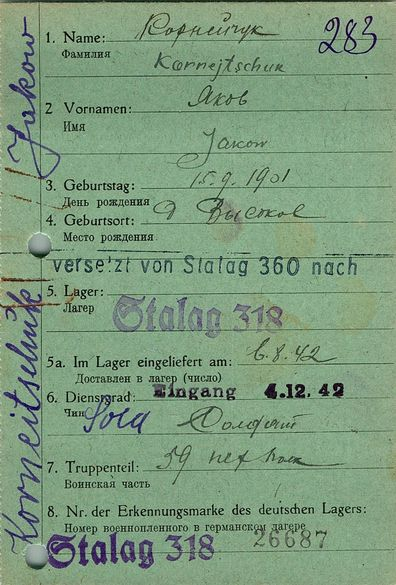 283
1. Name: Корнейчук
Фамилия
Kornejtschuk
2 Vornamen: Яков
Имя
Jakow
3. Geburtstag: 15.9.1901
День рождения
4. Geburtsort: д Высокое
Место рождения
versetzt von Stalag 360 nach
5. Lager:
Лагер
Stalag 318
5a. Im Lager eingeliefert am: 6.8.42
Доставлен в лагер (число)
6. Dienstgrad: Eingang 4.12.42
Чин Sold Солдат
7. Truppenteil: 59
Воинская часть
8. Nr. der Erkennungsmarke des deutschen Lagers:
Номер военнопленного в германском лагере
Stalag 318 26687
Korneitschuk Jakow